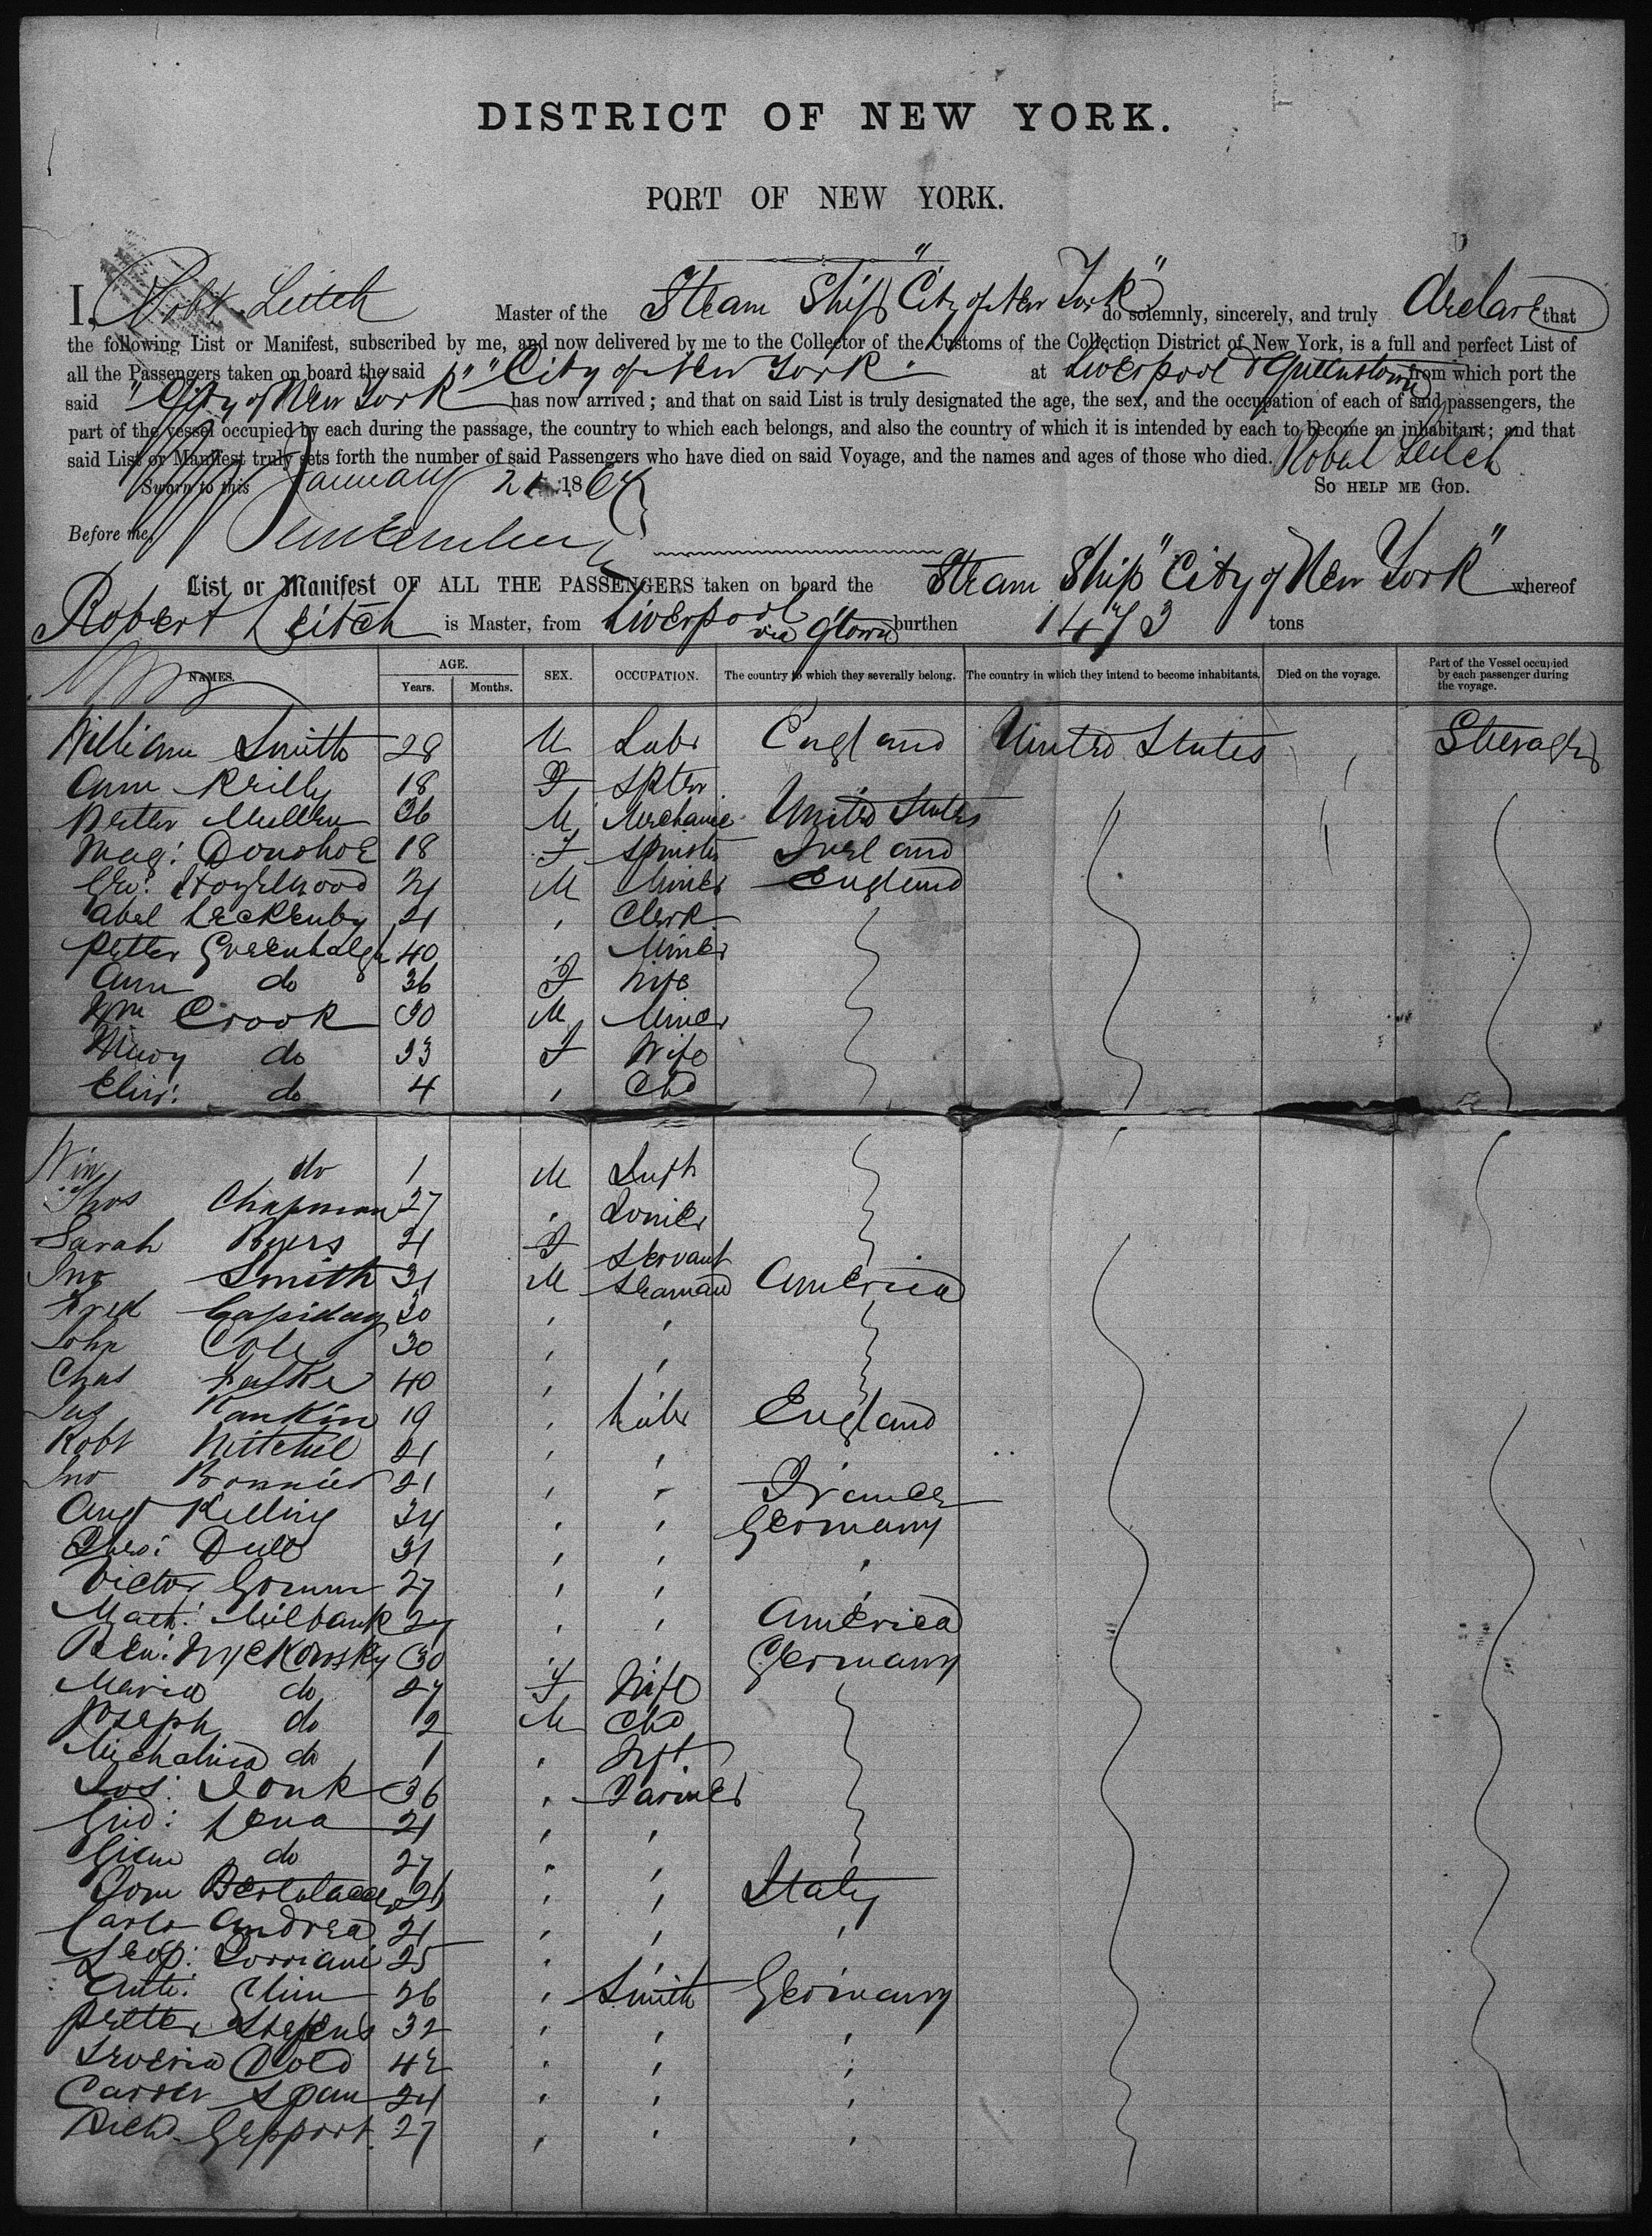 DISTRICT OF NEW YORK.
PORT OF NEW YORK.
I, Robt. Leitch Master of the Steam Ship "City of New York" do solemnly, sincerely, and truly declare that
the following List or Manifest, subscribed by me, and now delivered by me to the Collector of the Customs of the Collection District of New York, is a full and perfect List of
all the Passengers taken on board the said "City of New York" at Liverpool & Queenstown from which port the
said "City of New York" has now arrived; and that on said List is truly designated the age, the sex, and the occupation of each of said passengers, the
part of the vessel occupied by each during the passage, the country to which each belongs, and also the country of which it is intended by each to become an inhabitant; and that
said List or Manifest truly sets forth the number of said Passengers who have died on said Voyage, and the names and ages of those who died. Robert Leitch
Sworn to this January 2 1864 SO HELP ME GOD.
Before me,
List or Manifest OF ALL THE PASSENGERS taken on board the Steam Ship "City of New York" whereof
Robert Leitch is Master, from Liverpool via Qtown burthen 1473 tons
NAMES. AGE. Years. Months. SEX. OCCUPATION. The country to which they severally belong. The country in which they intend to become inhabitants. Died on the voyage. Part of the Vessel occupied by each passenger during the voyage.
William Smith 28 M Labr England United States Steerage
Ann Reilly 18 F Spter
Petter Mullen 36 M Mechanic United States
Mag: Donohoe 18 F Spinster Ireland
Geo: Hazelwood 21 M Miner England
Abel Leckenby 21 " Clerk
Petter Greenhalgh 40 " Miner
Ann do 36 F Wife
Wm Crook 30 M Miner
Mary do 33 F Wife
Eliz: do 4 " Chd
Wm do 1 M Inft
Thos Chapman 27 " Joiner
Sarah Byers 21 F Servant
Jno Smith 31 M Seaman America
Fred Cassiday 30 " "
John Cole 30 " "
Chas 40 "
Jas Rankin 19 " Labr England
Robt Mitchel 21 " "
Jno Bonnier 21 " " France
Aug Killing 34 " " Germany
Theo: Dull 31 " " "
Victor 27 " " "
Math: Milbank 27 " " America
Ben: 30 " " Germany
Maria do 27 F Wife
Joseph do 2 M Chd
Michalina do 1 " Inft
Jos: Jonk 36 " Farmer
Gio: Lena 21 " "
Gian do 27 " "
Dom 21 " " Italy
Carlo Andrea 21 " " "
Leop: Lorriani 25 " "
Anto: 26 " Smith Germany
Petter Stepens 32 " " "
Dold 42 " " "
Casser Span 24 " " "
Richd Gepport 27 " " "